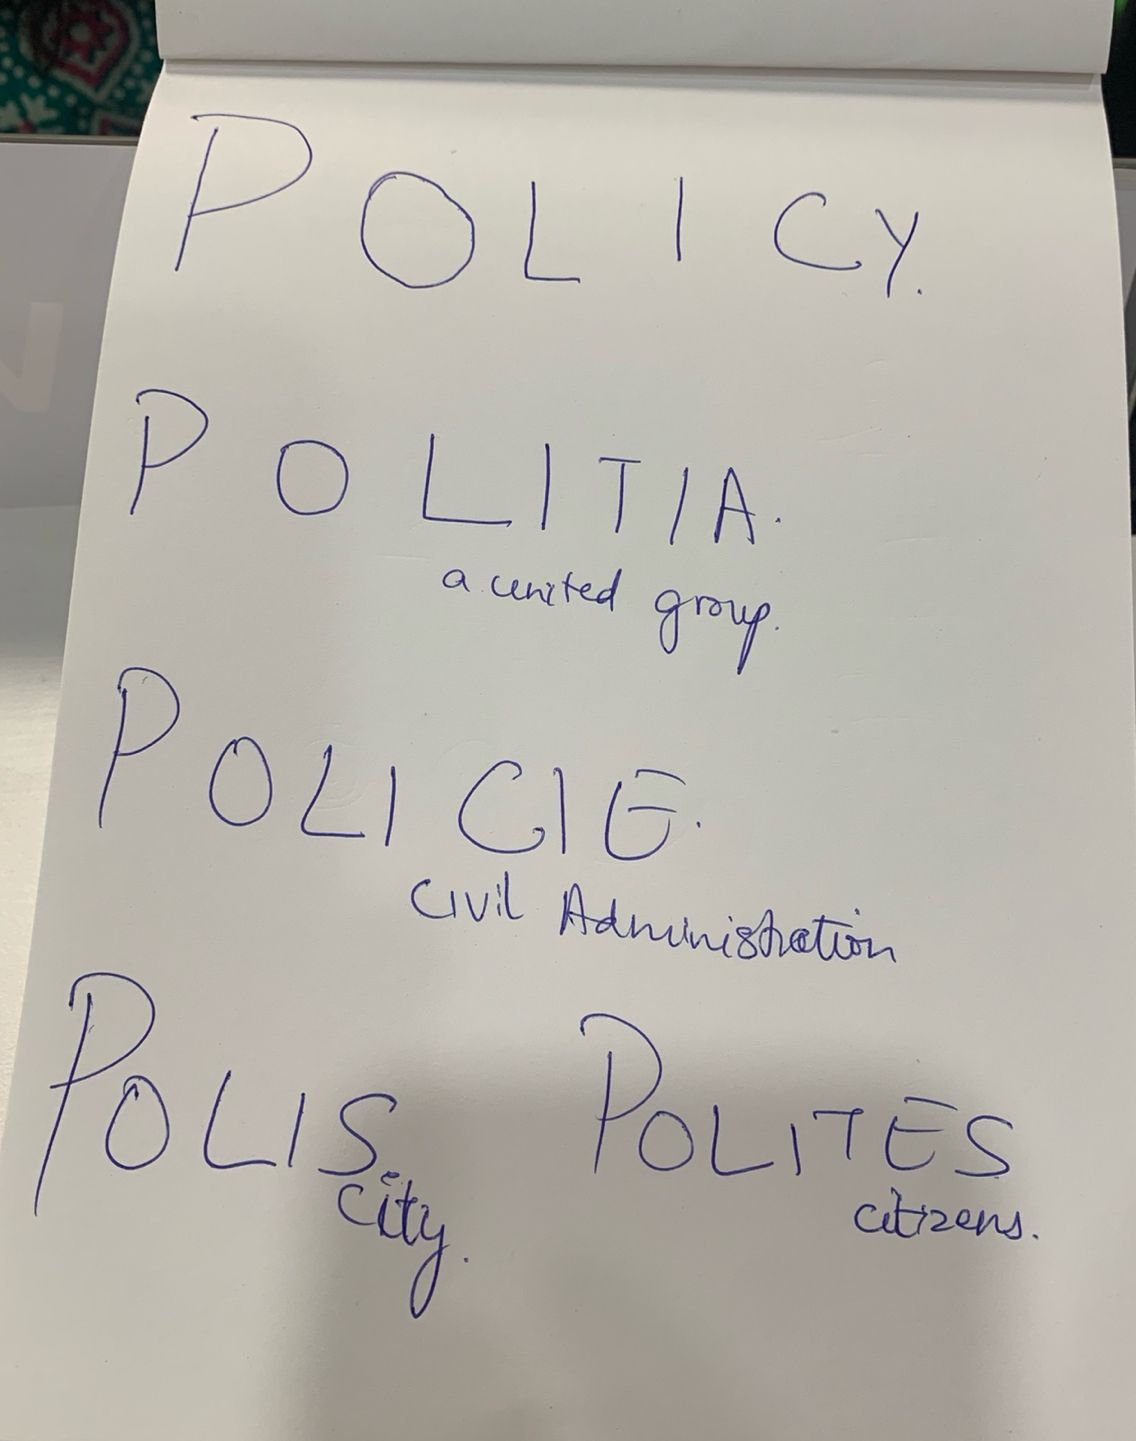 POLICY.
POLITIA.
a united group.
POLICIE.
Civil Administration
POLIS. POLITES
city. citizens.